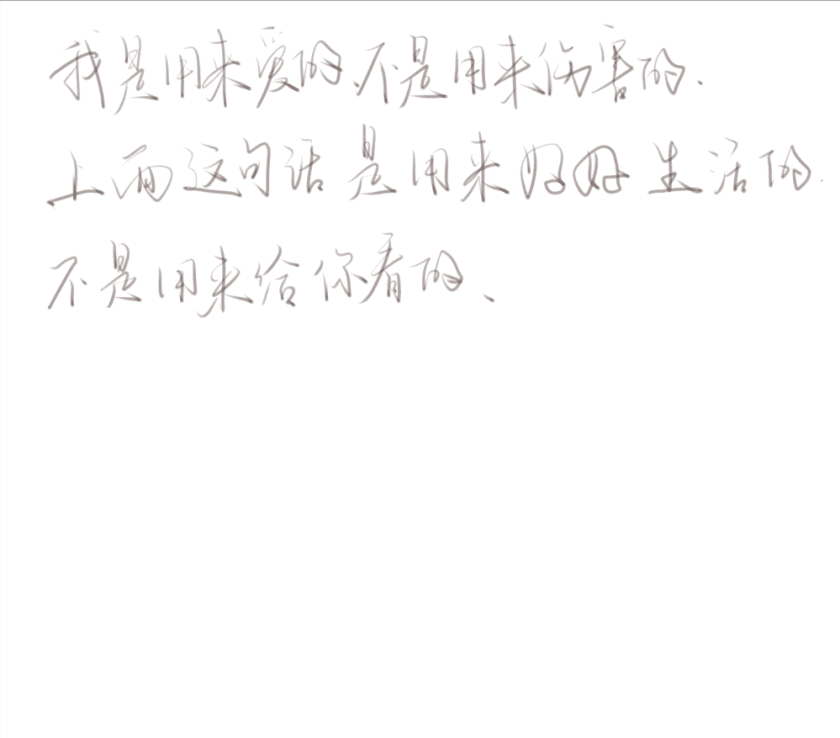 我是用来爱的、不是用来伤害的.
上面这句话是用来好好生活的.
不是用来给你看的、